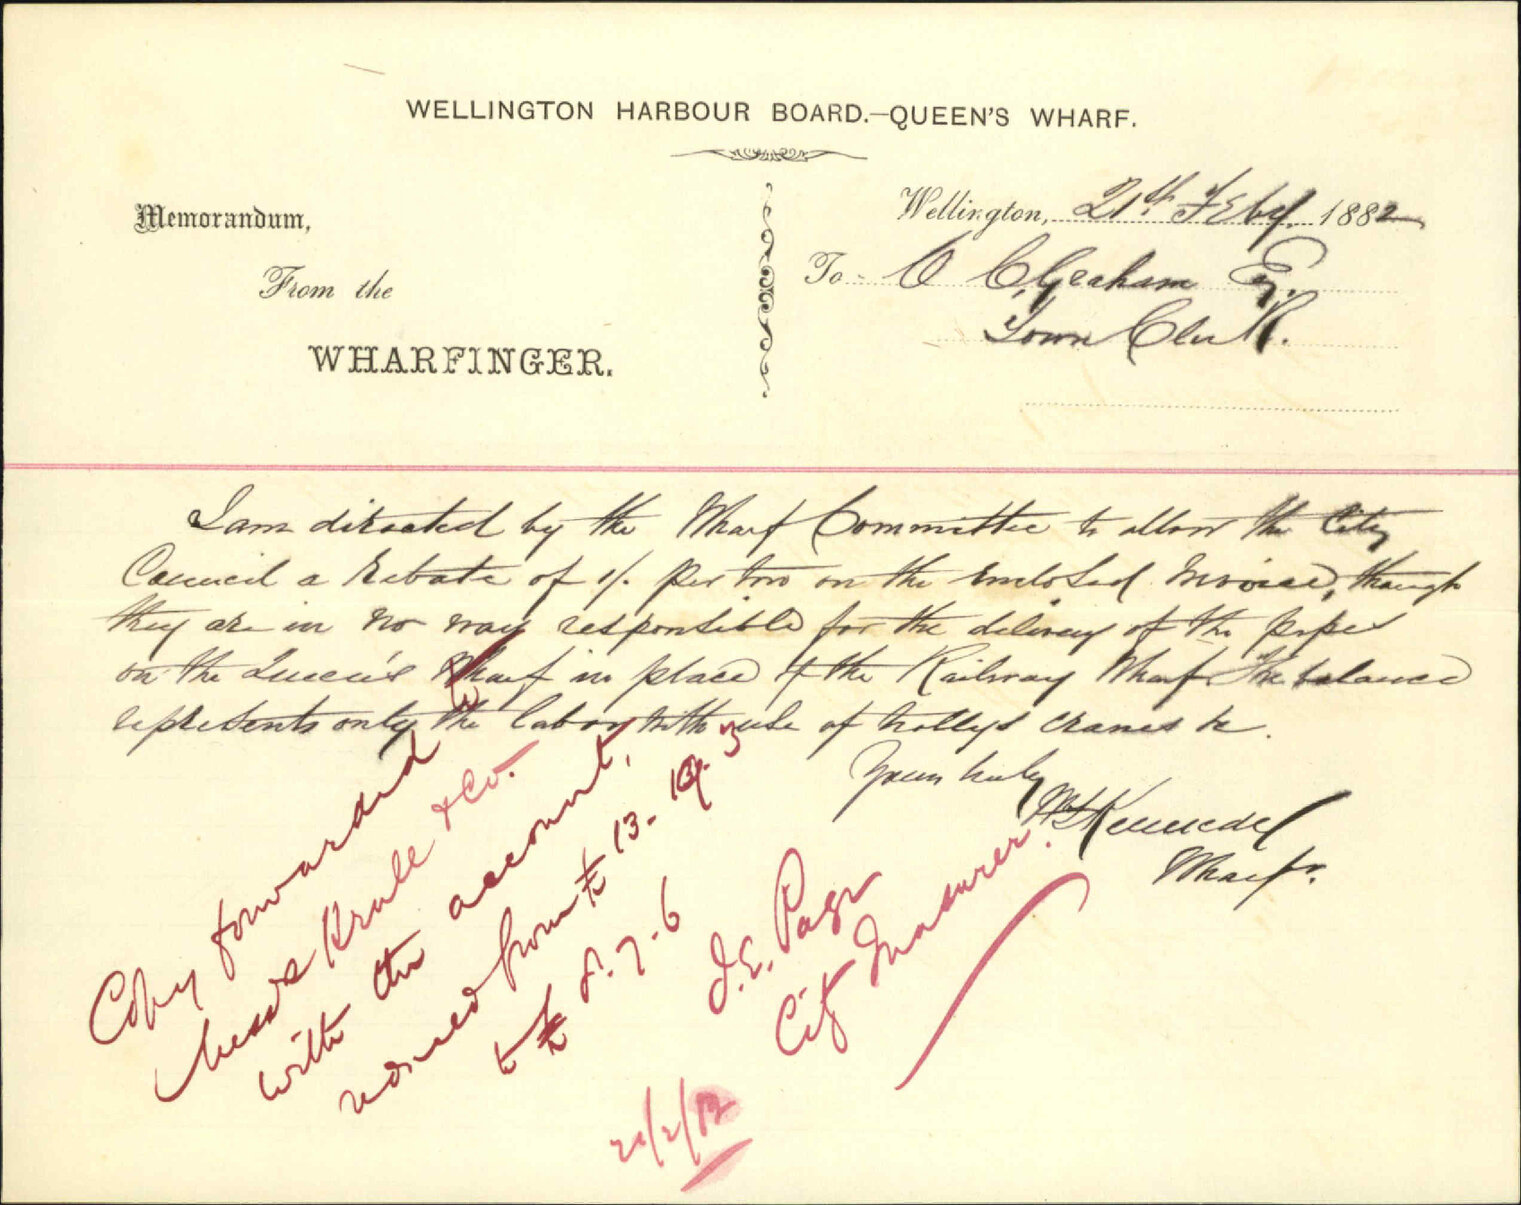 WELLINGTON HARBOUR BOARD.—QUEEN'S WHARF.
Memorandum,
From the
WHARFINGER.
Wellington, 21th Feby. 1882
To C. C. Graham Esq.
Town Clerk.
I am directed by the Wharf Committee to allow the City
Council a Rebate of 1/. per ton on the enclosed Invoice, though
they are in no way responsible for the delivery of the pipes
on the Queen's Wharf in place of the Railway Wharf. The balance
represents only the labor with use of trollys cranes &c.
Yours truly
Wm Kennedy
Wharfr.
Copy forwarded to
Messrs Krull & Co.
with the account,
reduced from £13. 19. 3
to £8. 7. 6
J.E. Page
City Treasurer.
21/2/82